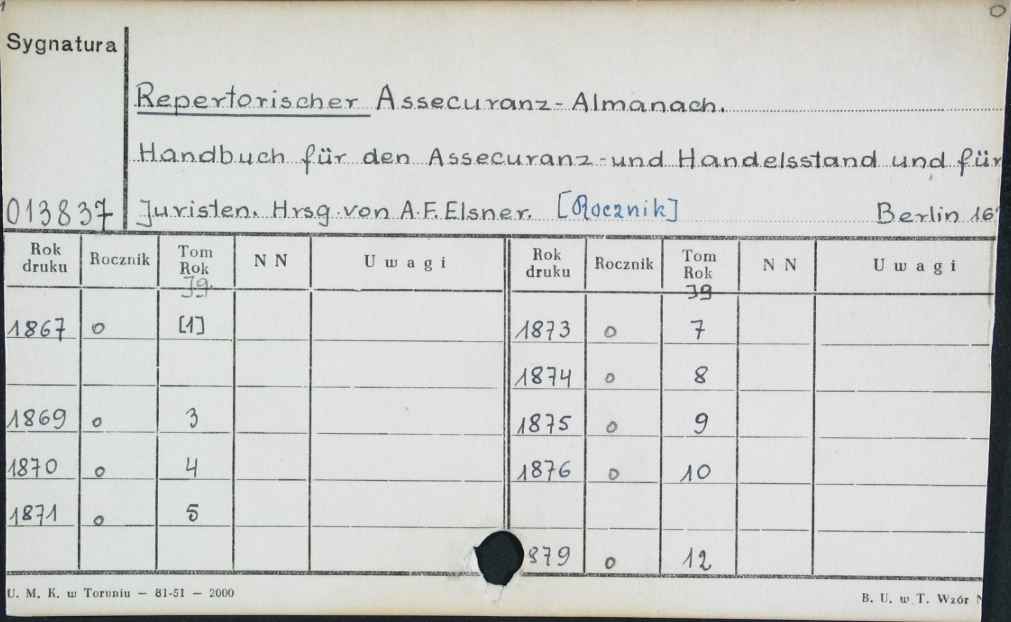 Sygnatura
Repertorischer Assecuranz-Almanach.
Handbuch für den Assecuranz- und Handelsstand und für
013837 Juristen. Hrsg. von A.F. Elsner. [Rocznik] Berlin
Rok druku Rocznik Tom Rok N N Uwagi Rok druku Rocznik Tom Rok N N Uwagi
Jg. Jg
1867 o [1] 1873 o 7
1874 o 8
1869 o 3 1875 o 9
1870 o 4 1876 o 10
1871 o 5
879 o 12
U. M. K. w Toruniu — 81-51 — 2000 B. U. w T. Wzór